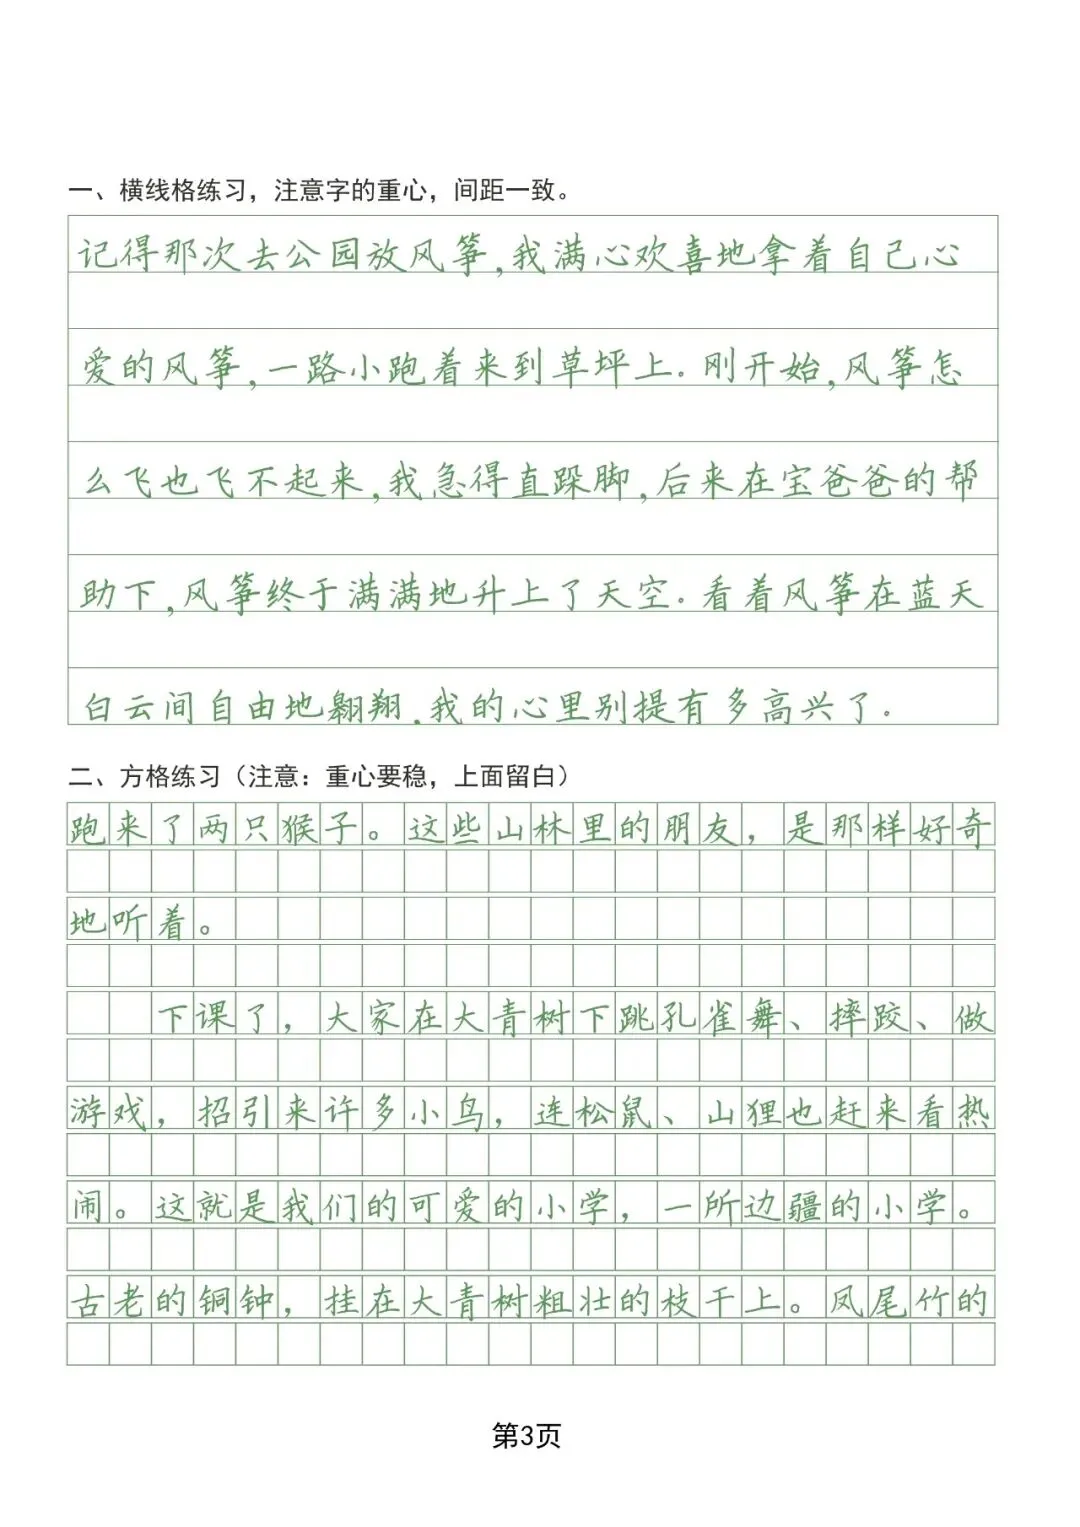 一、横线格练习，注意字的重心，间距一致。
记得那次去公园放风筝,我满心欢喜地拿着自己心
爱的风筝,一路小跑着来到草坪上.刚开始,风筝怎
么飞也飞不起来,我急得直跺脚,后来在宝爸爸的帮
助下,风筝终于满满地升上了天空.看着风筝在蓝天
白云间自由地翱翔,我的心里别提有多高兴了.
二、方格练习（注意：重心要稳，上面留白）
跑来了两只猴子。这些山林里的朋友，是那样好奇
地听着。
下课了，大家在大青树下跳孔雀舞、摔跤、做
游戏，招引来许多小鸟，连松鼠、山狸也赶来看热
闹。这就是我们的可爱的小学，一所边疆的小学。
古老的铜钟，挂在大青树粗壮的枝干上。凤尾竹的
第3页